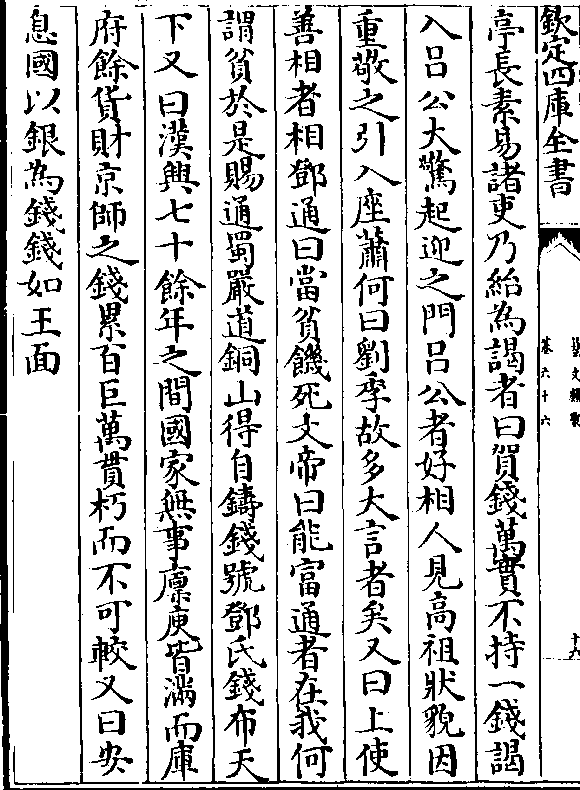 欽定四庫全書
藝文類聚
卷六十六
亭長素易諸吏乃紿為謁者曰賀錢萬實不持一錢謁
入吕公大驚起迎之門吕公者好相人見高祖狀貌因
重敬之引入座蕭何曰劉季故多大言者矣又曰上使
善相者相鄧通曰當貧饑死文帝曰能富通者在我何
謂貧於是賜通蜀嚴道銅山得自鑄錢號鄧氏錢布天
下又曰漢興七十餘年之間國家無事廪庾皆滿而庫
府餘貨財京師之錢累百巨萬貫朽而不可較又曰安
息國以銀為錢錢如王面